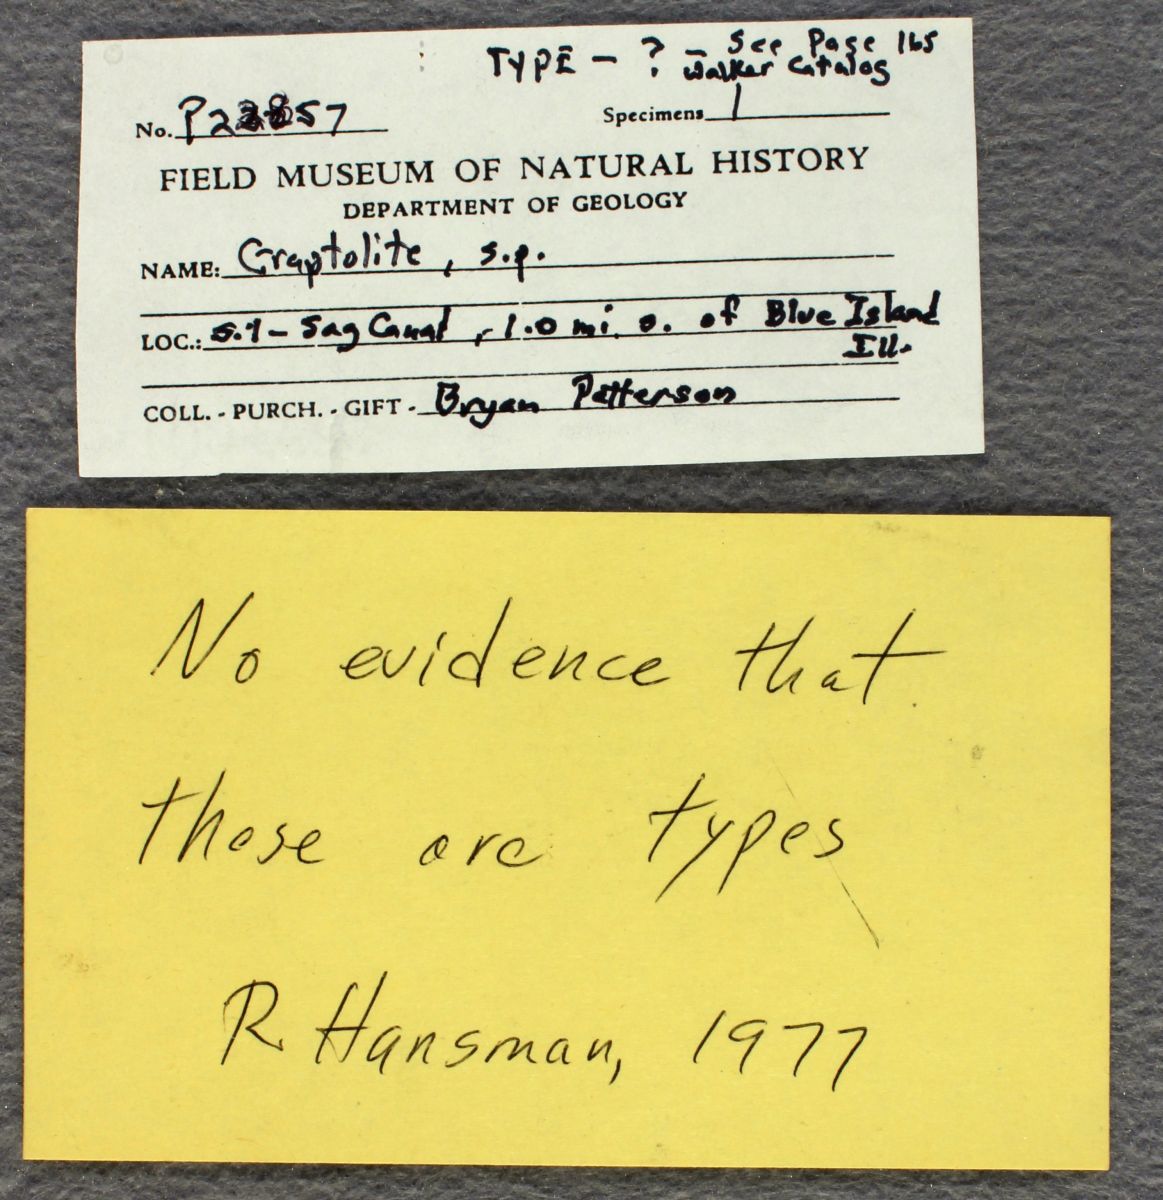 TYPE - ? - See Page 165
Walker Catalog
No. Specimens 1
FIELD MUSEUM OF NATURAL HISTORY
DEPARTMENT OF GEOLOGY
NAME: Graptolite, s.p.
LOC.: Sag Canal, 1.0 mi. o. of Blue Island
Ill.
COLL. - PURCH. - GIFT - Bryan Patterson
No evidence that
these are types
R Hansman, 1977